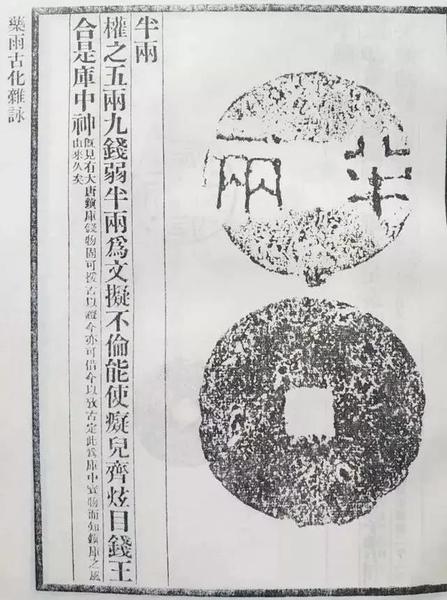 半兩
半兩
權之五兩九錢弱半兩爲文擬不倫能使癡兒齊炫目錢王
合是庫中神
既見有大唐鎭庫錢物固可援古以證今亦可借今以攷古定此爲庫中實物而知鎭庫之風
由來久矣
藥雨古化雜詠